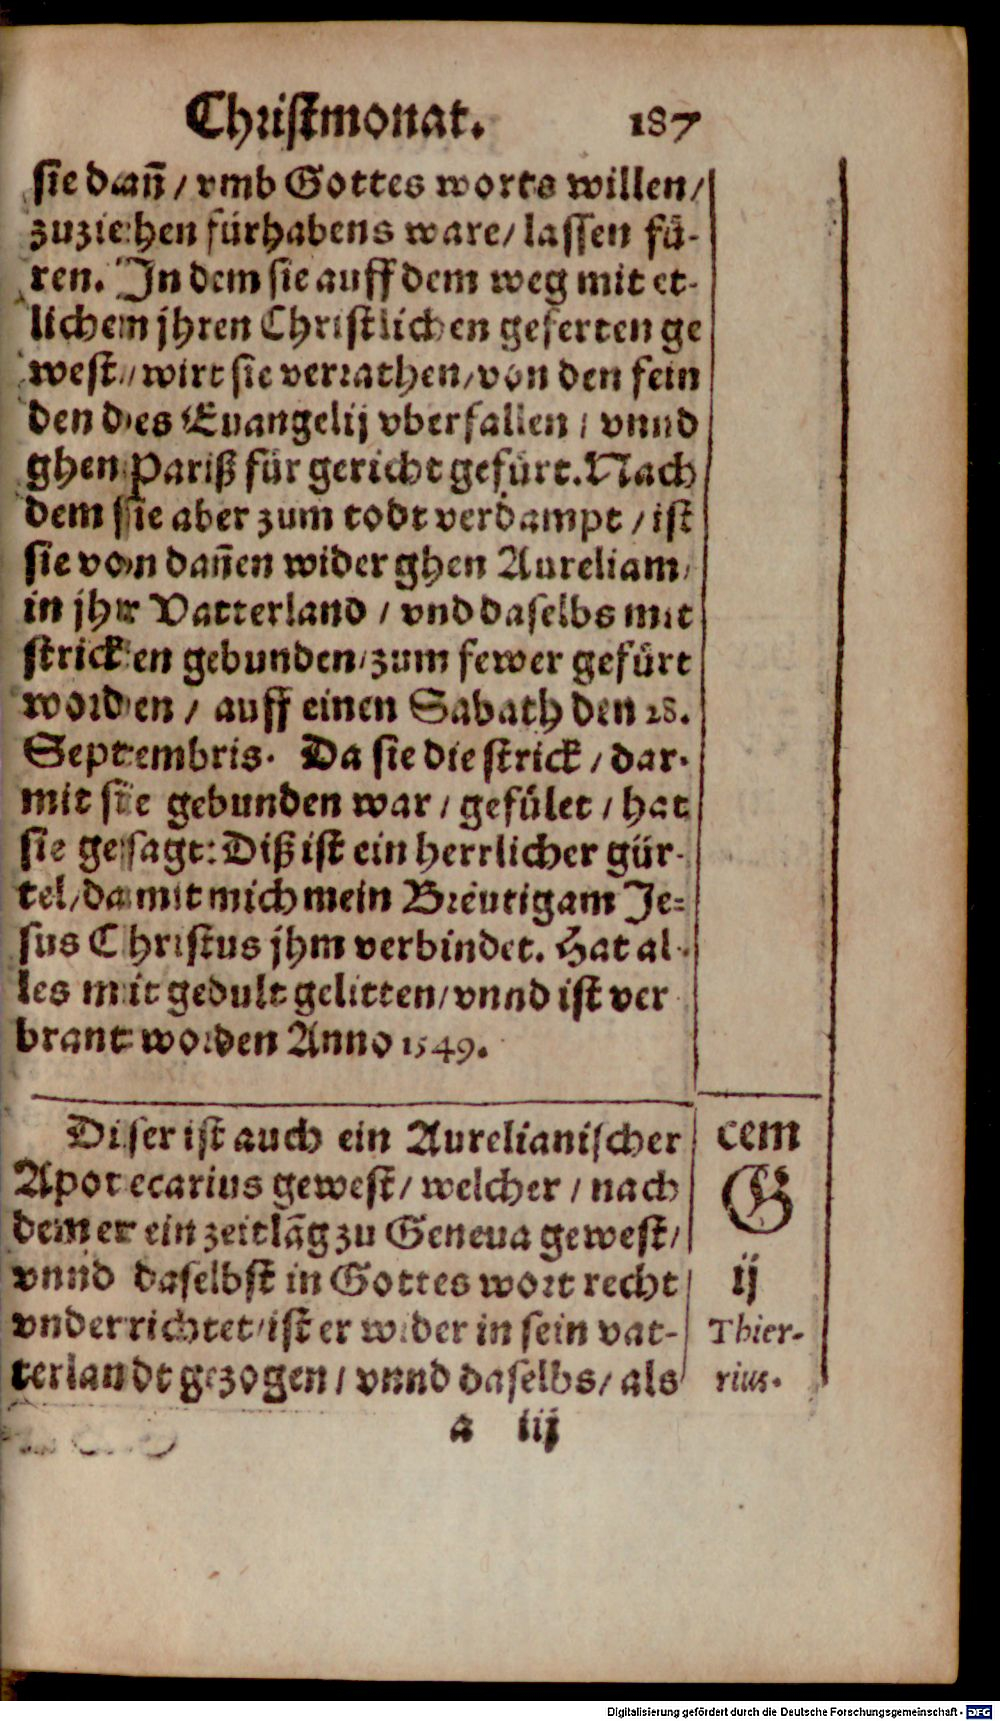 Christmonat. 187
sie dañ / vmb Gottes worts willen /
zuziehen fürhabens ware / lassen fü-
ren. In dem sie auff dem weg mit et-
lichem jhren Christlichen geferten ge
west / wirt sie verrathen / von den fein
den des Euangelij vberfallen / vnnd
ghen Pariß für gericht gefürt. Nach
dem sie aber zum todt verdampt / ist
sie von dañen wider ghen Aureliam /
in jhr Vatterland / vnd daselbs mit
stricken gebunden / zum fewer gefürt
worden / auff einen Sabath den 28.
Septembris. Da sie die strick / dar-
mit sie gebunden war / gefület / hat
sie gesagt: Diß ist ein herrlicher gür-
tel / damit mich mein Breutigam Je-
sus Christus jhm verbindet. Hat al-
les mit gedult gelitten / vnnd ist ver
brant worden Anno 1549.
Diser ist auch ein Aurelianischer
Apotecarius gewest / welcher / nach
dem er ein zeitlãg zu Geneua gewest /
vnnd daselbst in Gottes wort recht
vnderrichtet / ist er wider in sein vat-
terlandt gezogen / vnnd daselbs / als
cem
G
ij
Thier-
rius.
a iij
Digitalisierung gefördert durch die Deutsche Forschungsgemeinschaft - DFG